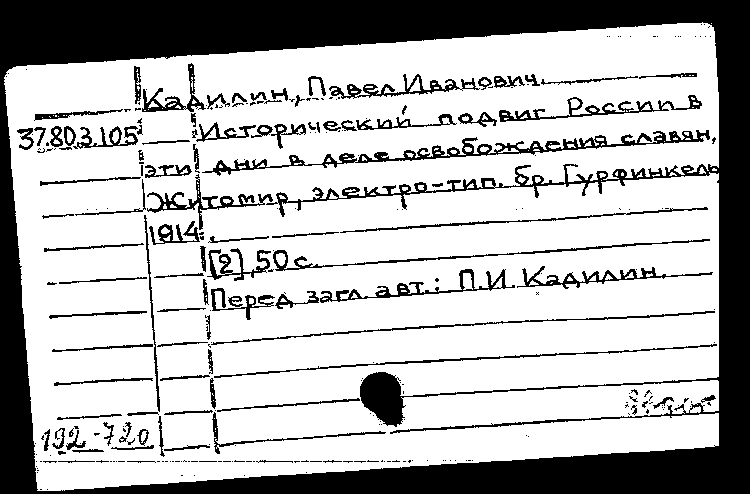 Кадилин, Павел Иванович.
37.80.3.105 Исторический подвиг России в
эти дни в деле освобождения славян.
Житомир, электро-тип. бр. Гурфинкель,
1914.
[2], 50 с.
Перед загл. авт.: П.И. Кадилин.
192-720